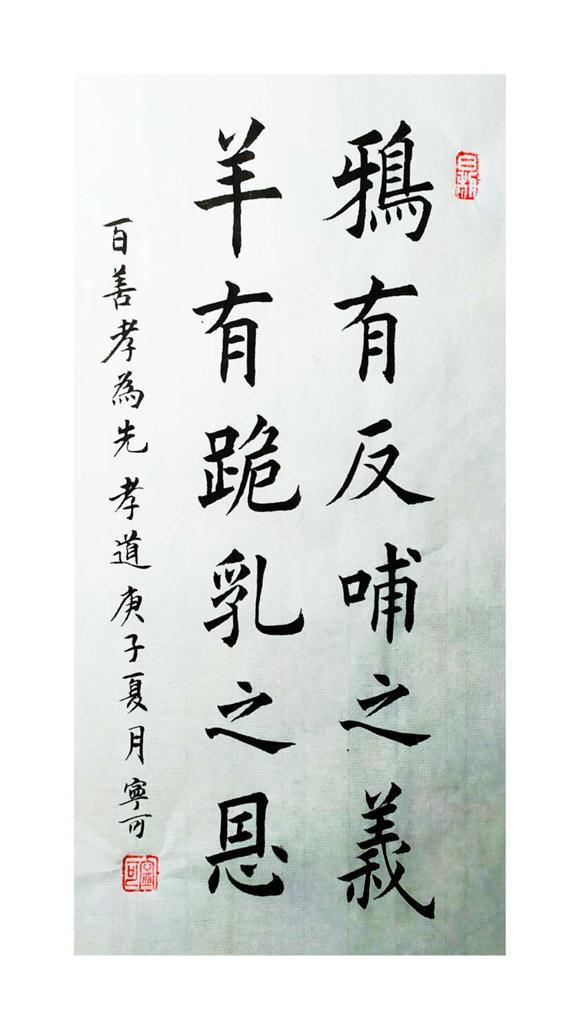 鴉有反哺之義
羊有跪乳之恩
百善孝為先 孝道 庚子夏月 寧可